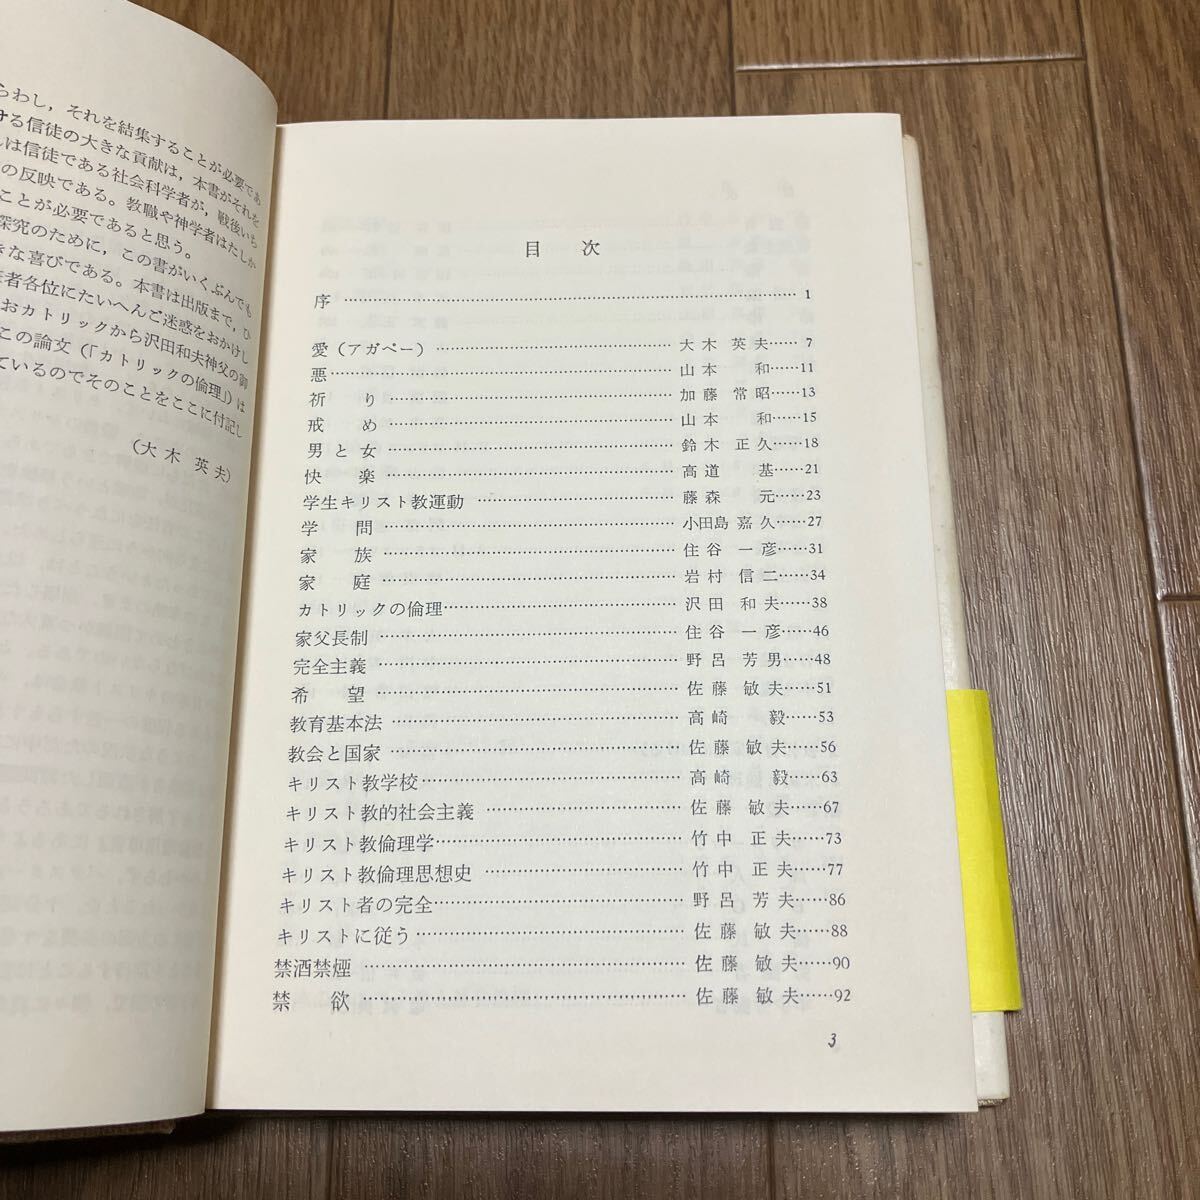 らわし，それを結集することが必要であ
ける信徒の大きな貢献は，本書がそれを
んは信徒である社会科学者が，戦後いち
の反映である。教職や神学者はたしか
ことが必要であると思う。
探究のために，この書がいくぶんでも
きな喜びである。本書は出版まで，ひ
者各位にたいへんご迷惑をおかけし
おカトリックから沢田和夫神父の御
この論文（「カトリックの倫理」）は
ているのでそのことをここに付記し
（大木 英夫）
目 次
序 …… 1
愛（アガペー） …… 大木 英夫 …… 7
悪 …… 山本 和 …… 11
祈り …… 加藤 常昭 …… 13
戒め …… 山本 和 …… 15
男と女 …… 鈴木 正久 …… 18
快楽 …… 高道 基 …… 21
学生キリスト教運動 …… 藤森 元 …… 23
学問 …… 小田島 嘉久 …… 27
家族 …… 住谷 一彦 …… 31
家庭 …… 岩村 信二 …… 34
カトリックの倫理 …… 沢田 和夫 …… 38
家父長制 …… 住谷 一彦 …… 46
完全主義 …… 野呂 芳男 …… 48
希望 …… 佐藤 敏夫 …… 51
教育基本法 …… 高崎 毅 …… 53
教会と国家 …… 佐藤 敏夫 …… 56
キリスト教学校 …… 高崎 毅 …… 63
キリスト教的社会主義 …… 佐藤 敏夫 …… 67
キリスト教倫理学 …… 竹中 正夫 …… 73
キリスト教倫理思想史 …… 竹中 正夫 …… 77
キリスト者の完全 …… 野呂 芳夫 …… 86
キリストに従う …… 佐藤 敏夫 …… 88
禁酒禁煙 …… 佐藤 敏夫 …… 90
禁欲 …… 佐藤 敏夫 …… 92
3